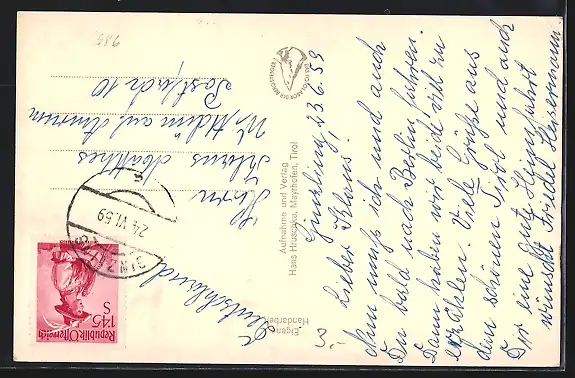 Ginzling, 23.6.59
Lieber Klaus!
Nun muß ich und auch
Du bald nach Berlin fahren.
Dann haben wir beide viel zu
erzählen. Viele Grüße aus
dem schönen Tirol und auch
Dir eine gute Heimfahrt
wünscht Friedel Heisermann
Herrn
Klaus Matthes
Wittdün auf Amrum
Postfach 10
Deutschland
Aufnahme und Verlag
Hans Hruschka, Mayrhofen, Tirol
Eigene
Handarbeit
3,-
985
24.VI.59
S 1·45
Republik Österreich